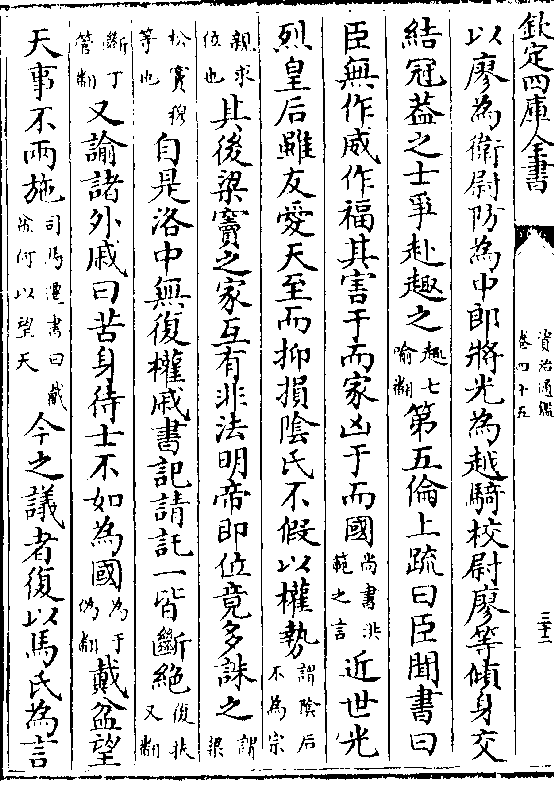 欽定四庫全書
資治通鑑
卷四十五
三十二
以廖為衛尉防為中郎將光為越騎校尉廖等傾身交
結冠葢之士爭赴趣之趣七喻翻第五倫上疏曰臣聞書曰
臣無作威作福其害于而家凶于而國尚書洪範之言近世光
烈皇后雖友愛天至而抑損隂氏不假以權勢謂隂后不為宗
親求位也其後梁竇之家互有非法明帝即位竟多誅之謂梁
松竇穆等也自是洛中無復權戚書記請託一皆斷絶復扶又翻
斷丁管翻又諭諸外戚曰苦身待士不如為國為于偽翻戴盆望
天事不兩施司馬遷書曰戴盆何以望天今之議者復以馬氏為言